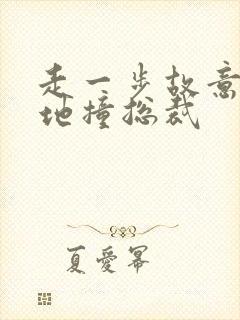 走一步故意
地撞总裁
夏爱幂